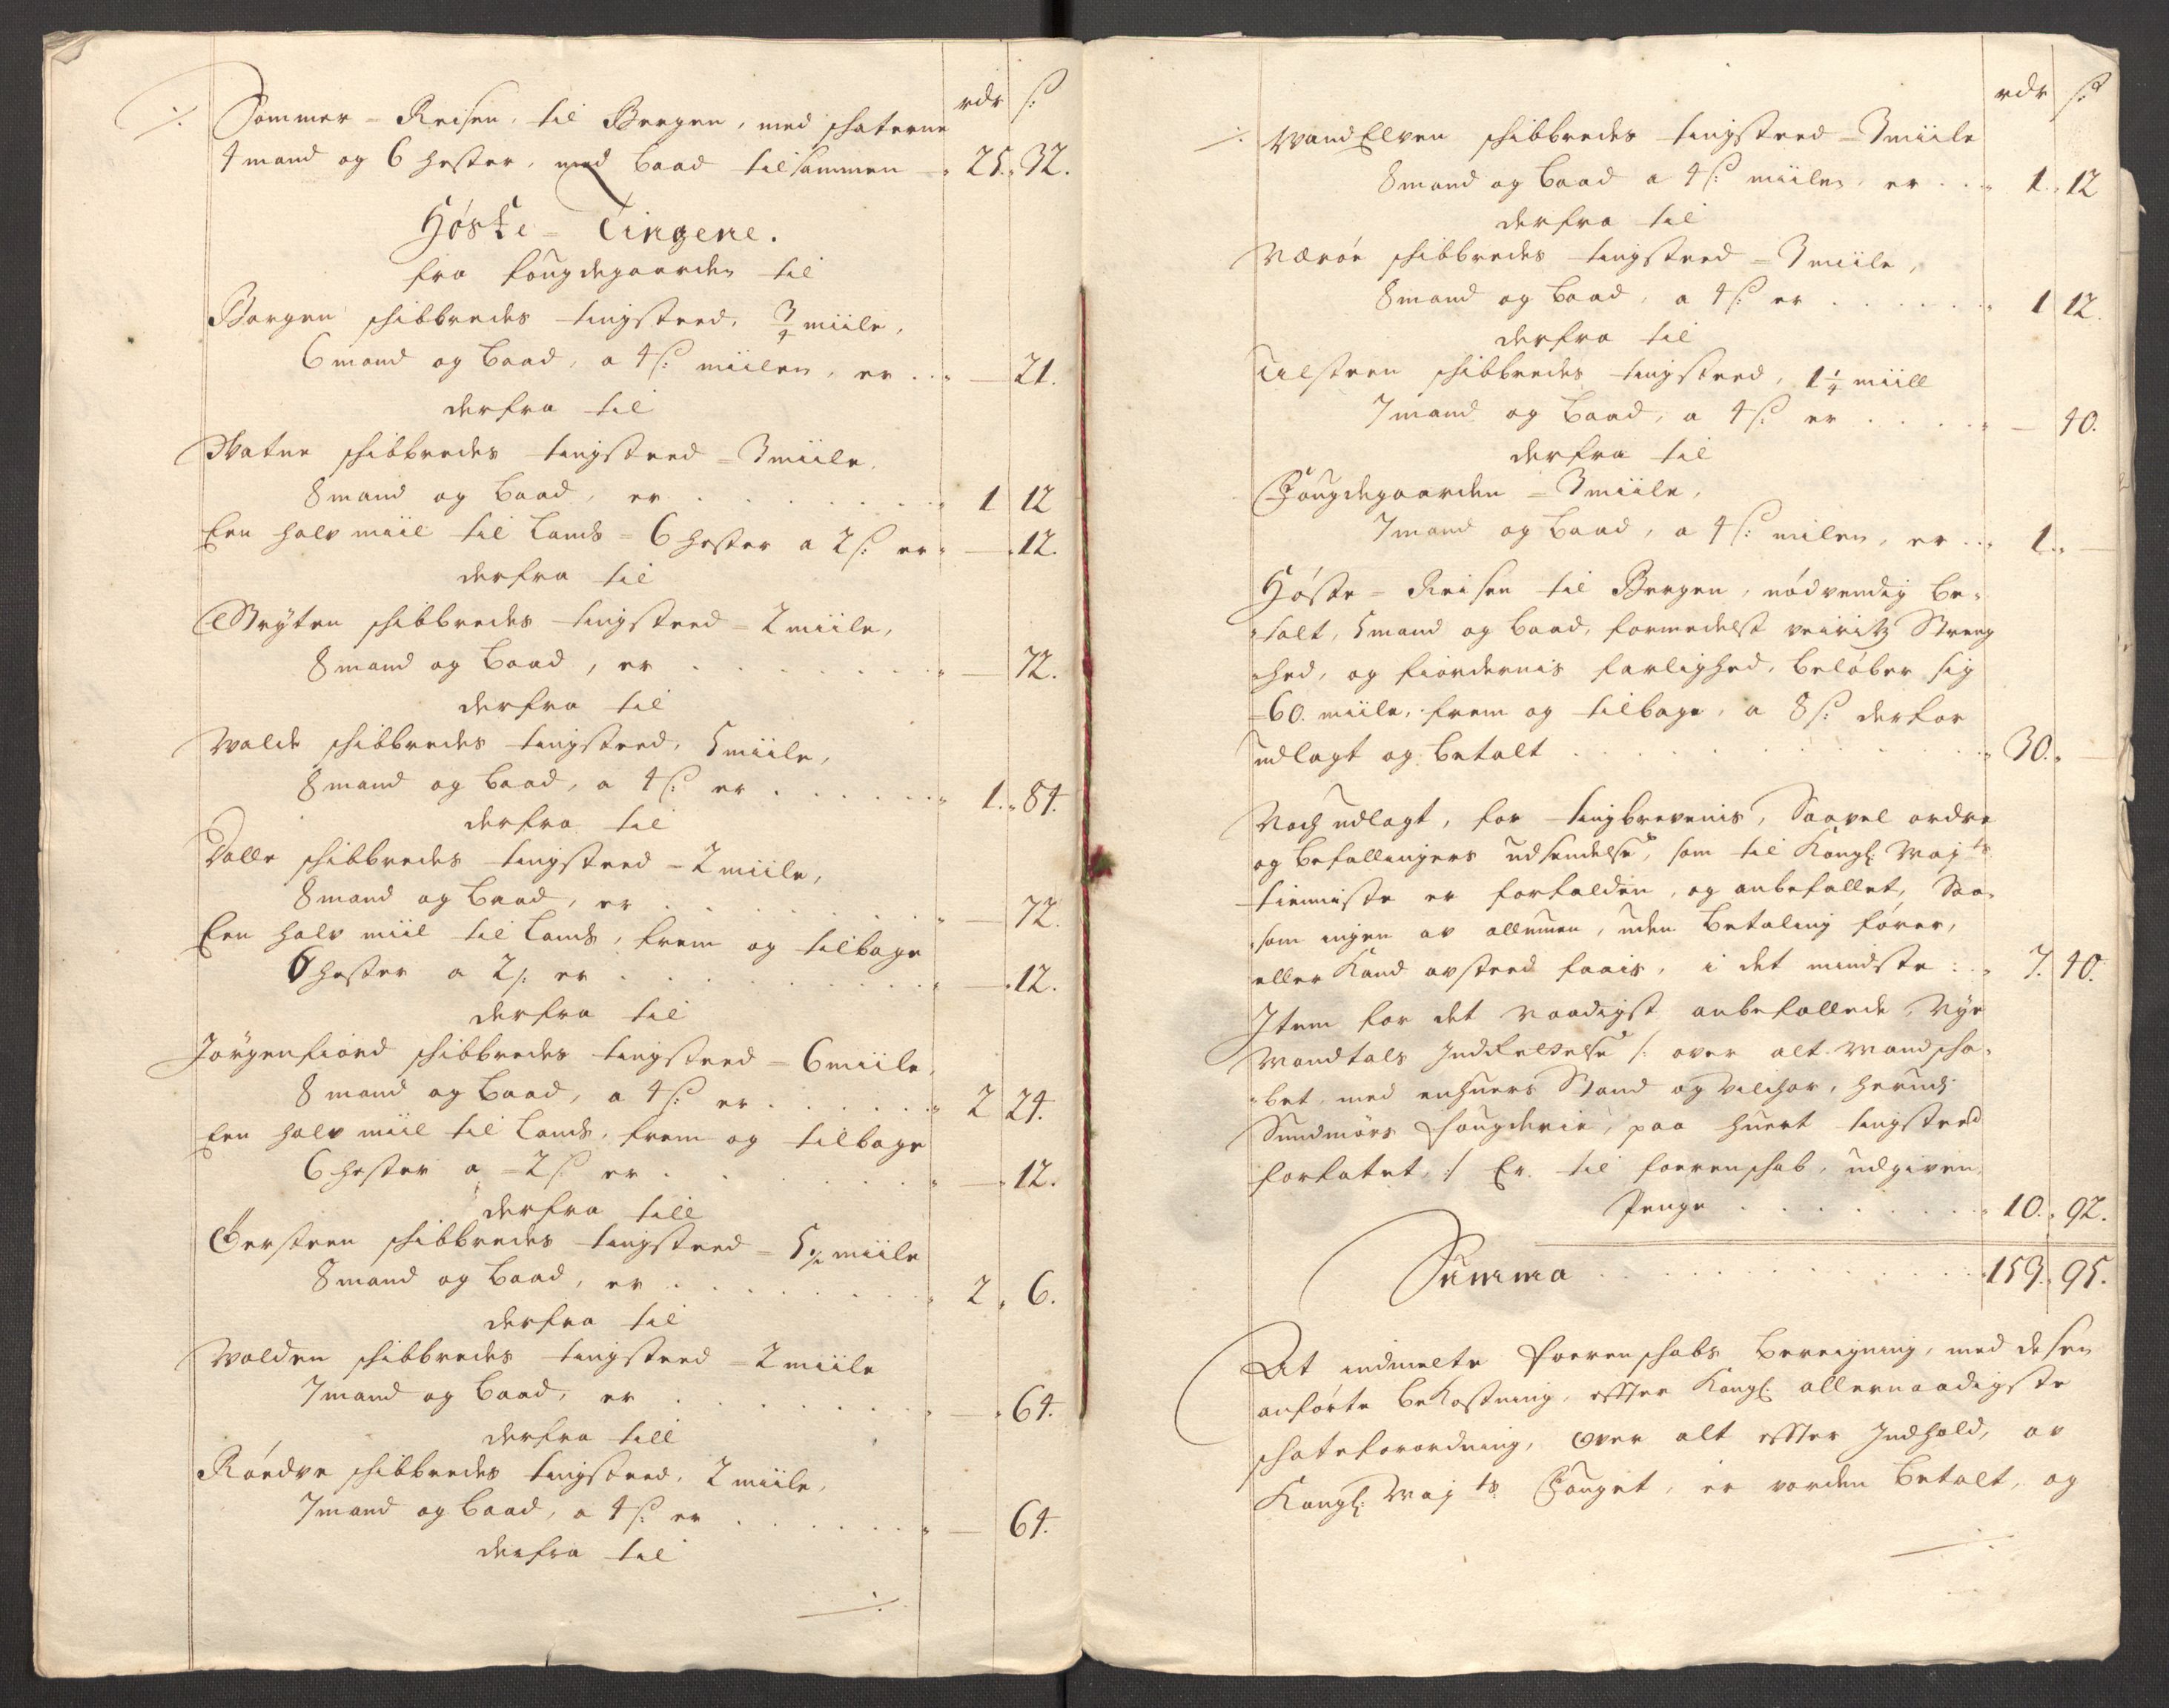 rdr ß:
Sommer-Reisen til Bergen, med schaterne
4 mand og 6 hester, med baad tilsammen - 25. 32.
Høste-Tingene.
fra fougdegaarden til
Borgen schibbredes tingsteed, 3/4 miile,
6 mand og baad, a 4 ß: miilen, er . . — 21.
derfra til
Vatne schibbredes tingsteed = 3 miile,
8 mand og baad, er . . . 1 12
Een halv miil til Lands = 6 hester a 2 ß: er — 12.
derfra til
Gryten schibbredes tingsteed = 2 miile,
8 mand og baad, er . . . — 72.
derfra til
Wolde schibbredes tingsteed, 5 miile,
8 mand og baad, a 4 ß: er . . . 1. 84.
derfra til
Dalle schibbredes tingsteed = 2 miile,
8 mand og baad, er . . . — 72.
Een halv miil til Lands, frem og tilbage
6 hester a 2 ß: er . . . — 12.
derfra til
Jørgenfiord schibbredes tingsteed = 6 miile,
8 mand og baad, a 4 ß: er . . . 2 24.
Een halv miil til Lands, frem og tilbage
6 hester a = 2 ß er . . . — 12.
derfra till
Øersteen schibbredes tingsteed = 5 1/2 miile
8 mand og baad, er . . . 2. 6.
derfra til
Wolden schibbredes tingsteed = 2 miile
7 mand og baad, er . . . — 64.
derfra till
Røedve schibbredes tingsteed, 2 miile,
7 mand og baad, a 4 ß: er . . . — 64.
derfra til
rdr ß
WandElven schibbredes tingsteed = 3 miile
8 mand og baad a 4 ß: miilen, er . . . 1. 12
derfra til
Nærøe schibbredes tingsteed = 3 miile,
8 mand og baad, a 4 ß: er . . . 1 12.
derfra til
Ulsteen schibbredes tingsteed, 1 1/4 miill
7 mand og baad, a 4 ß er . . . — 40.
derfra til
Fougdegaarden = 3 miile,
7 mand og baad, a 4 ß: milen, er . . 1. —
Høste-Reisen til Bergen, nødvendig be-
talt, 5 mand og baad, formedelst veiritz Streng
hed, og fiordernis farlighed, beløber sig
=60. miile, frem og tilbage, a 8 ß: derfor
udlagt og betalt . . . 30. —
Noch udlagt, for tingbrevenis, Saavel ordre
og befallingers udsendelse, som til Kongl: Maj ts
tienniste er forfalden, og anbefallet, Saa-
som ingen av allmuen, uden betaling fører,
eller Kand avsteed faais, i det mindste . . 7. 40.
Item for det Naadigst anbefallede, Nye
Mandtals Indrettelse /: over alt Mandska-
bet, med enhuers Stand og vilchor, herudj
Sundmørs fougderie, paa huert tingsteed
forfatet, :/ Er til foerenschab, udgiven
Penge . . . 10. 92.
Summa . . . 159. 95.
At indmelte foerenschabs beregning, med desen
anførte bekostning, effter Kongl: allernaadigste
schateforordning, over alt effter Indhold, av
Kongl: Maj ts Fouget, er vorden betalt, og